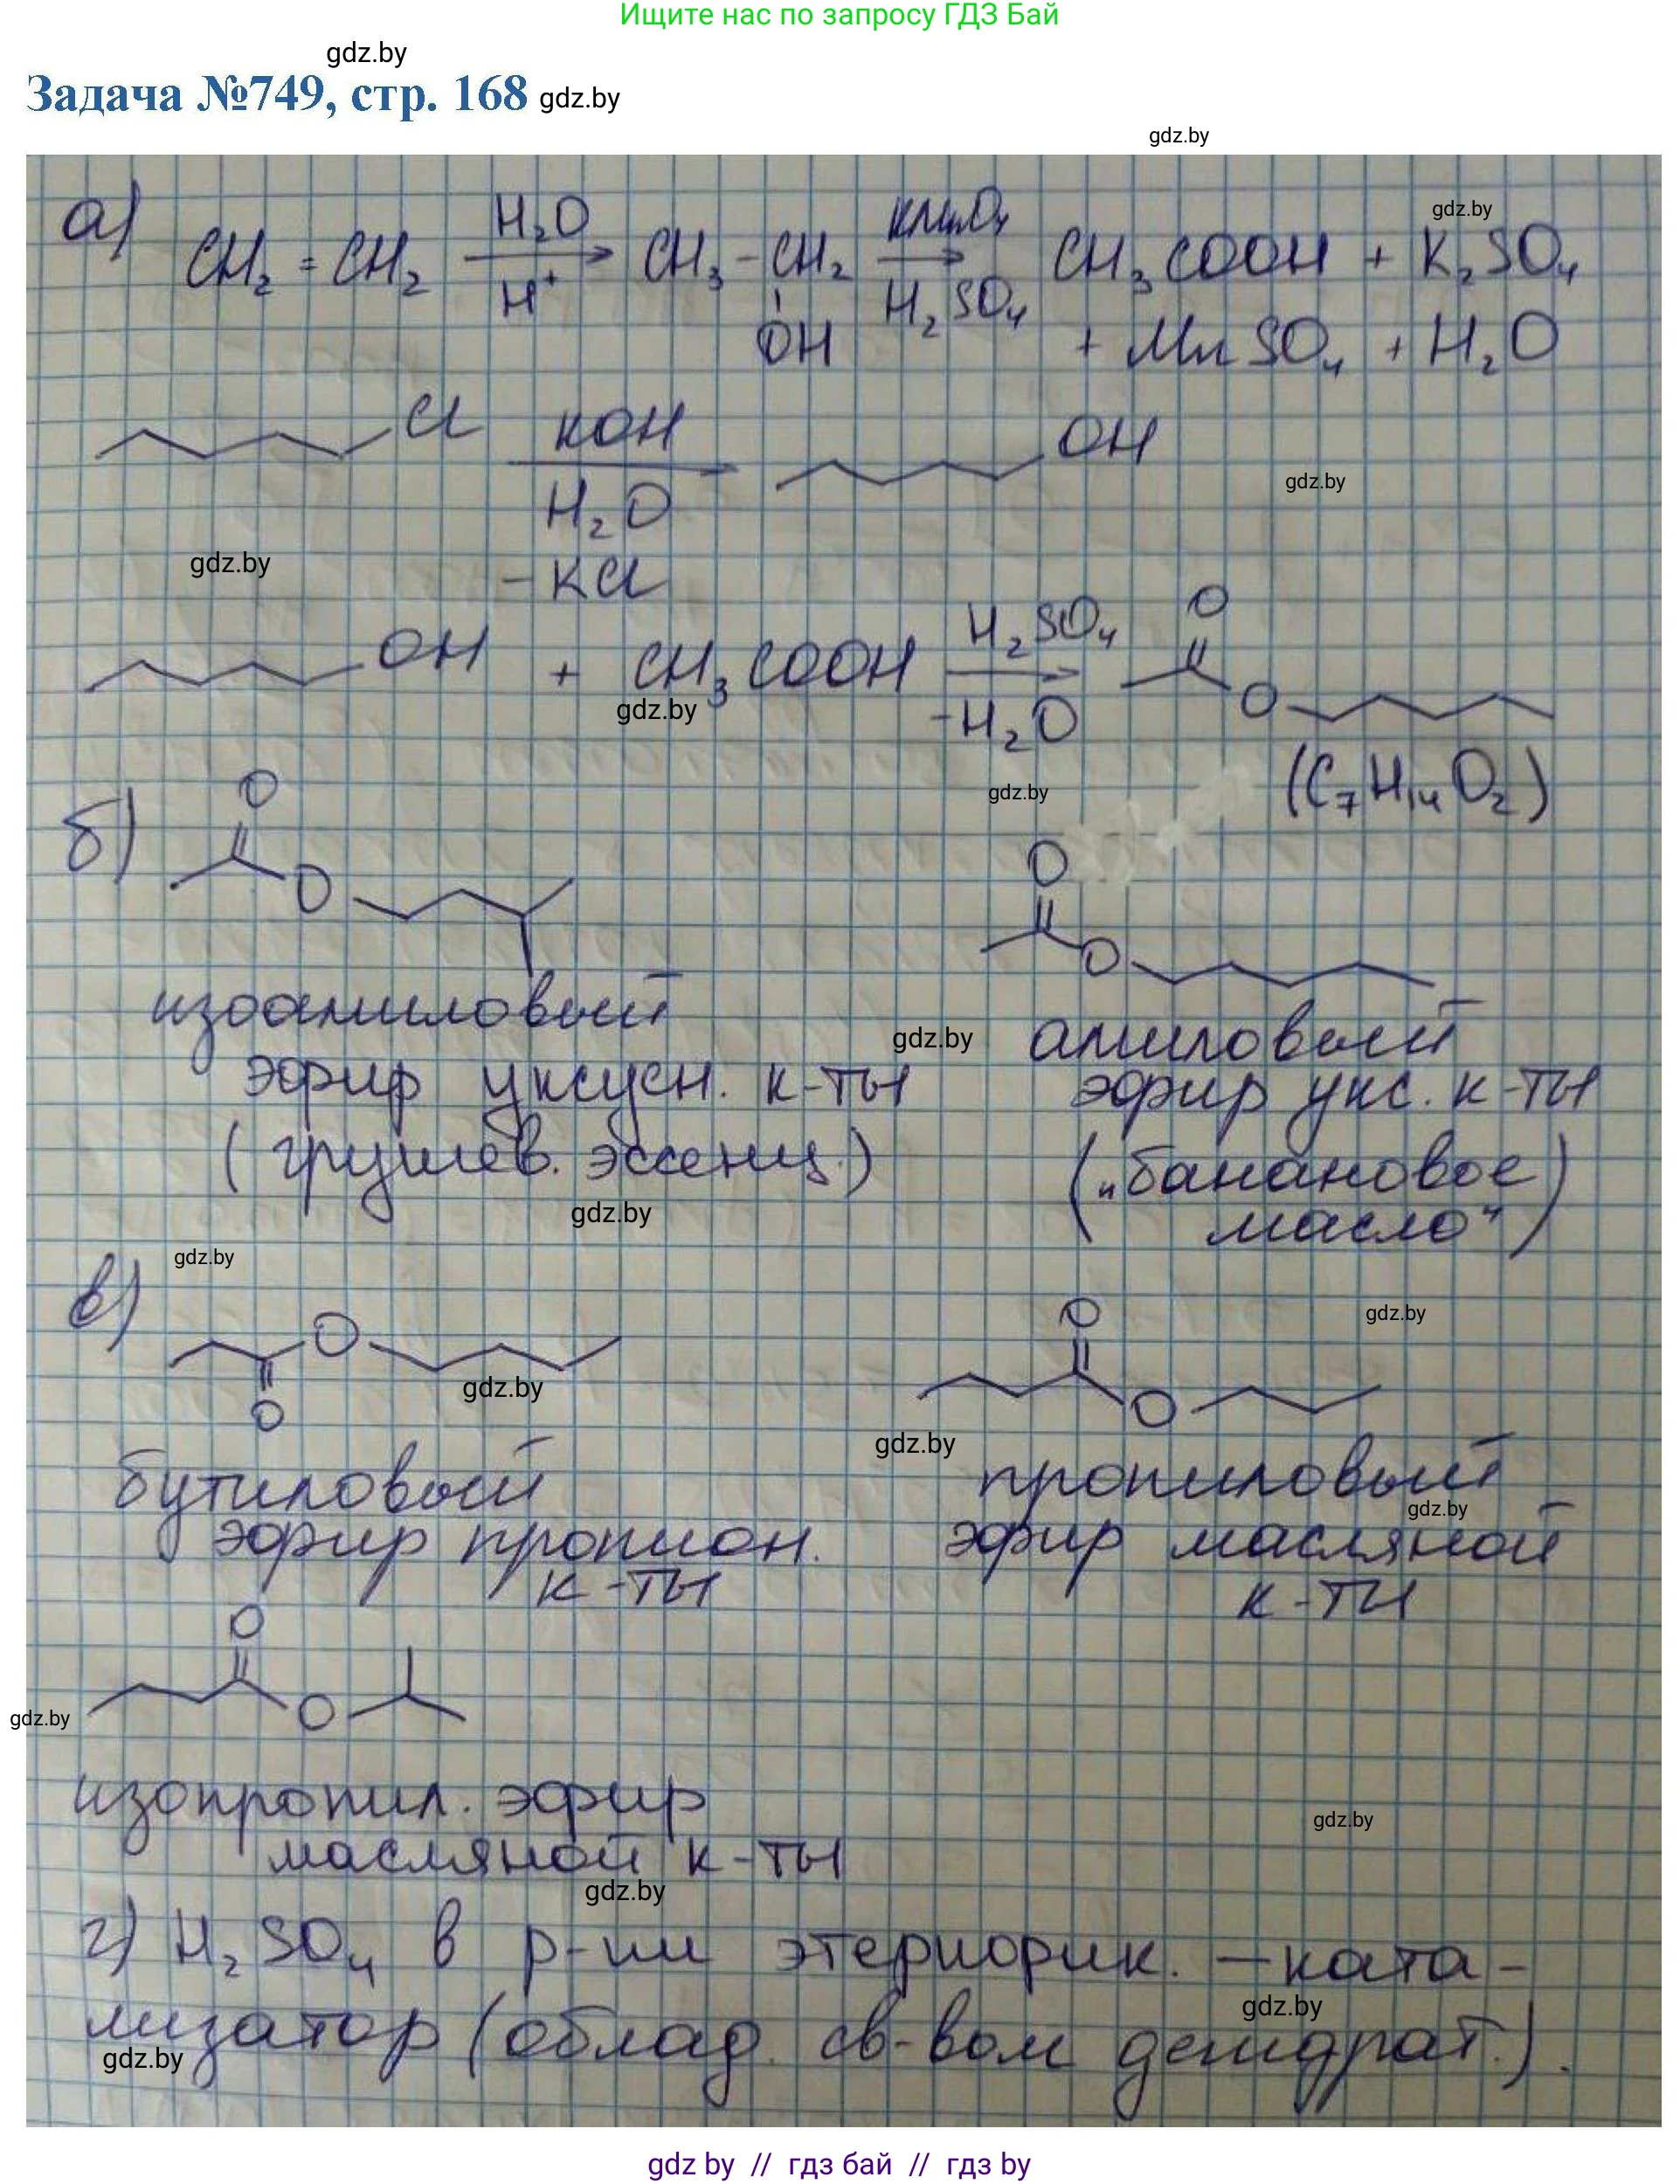 Ищите нас по запросу ГДЗ Бай
gdz.by
Задача №749, стр. 168 gdz.by
gdz.by
а) CH₂ = CH₂ H₂O H⁺ CH₃ - CH₂ KMnO₄ H₂SO₄ CH₃COOH + K₂SO₄
gdz.by
OH + MnSO₄ + H₂O
Cl KOH OH
H₂O
gdz.by
gdz.by
- KCl
OH + CH₃COOH H₂SO₄ O
gdz.by
-H₂O O
(C₇H₁₄O₂)
gdz.by
б) O O
O O
изоамиловый
эфир уксусн. к-ты
(грушев. эссенц.)
gdz.by
амиловый
эфир укс. к-ты
("банановое
масло")
gdz.by
gdz.by
в) O O
gdz.by
O O
gdz.by
gdz.by
бутиловый
эфир пропион.
к-ты
пропиловый
gdz.by
эфир масляной
к-ты
O
O
gdz.by
изопропил. эфир
масляной к-ты
gdz.by
gdz.by
г) H₂SO₄ в р-ии этерифик. — ката-
лизатор (облад. св-вом дегидрат.).
gdz.by
gdz.by
gdz by // гдз бай // гдз by